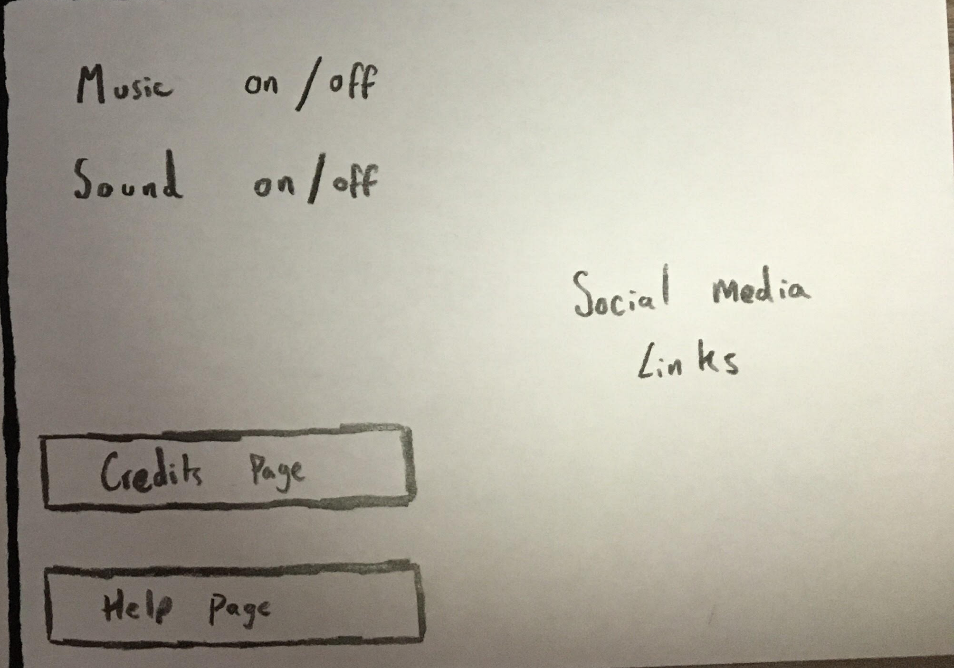 Music on / off
Sound on / off
Social Media
Links
Credits Page
Help Page